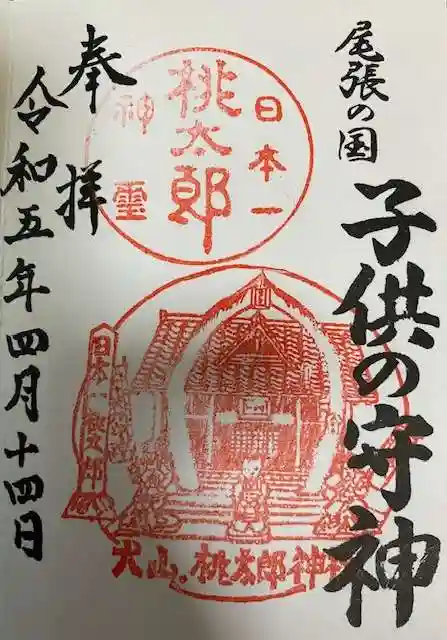 尾張の国
子供の守神
日本一
桃太郎
神霊
奉拝
令和五年四月十四日
日本一桃太郎
犬山・桃太郎神社